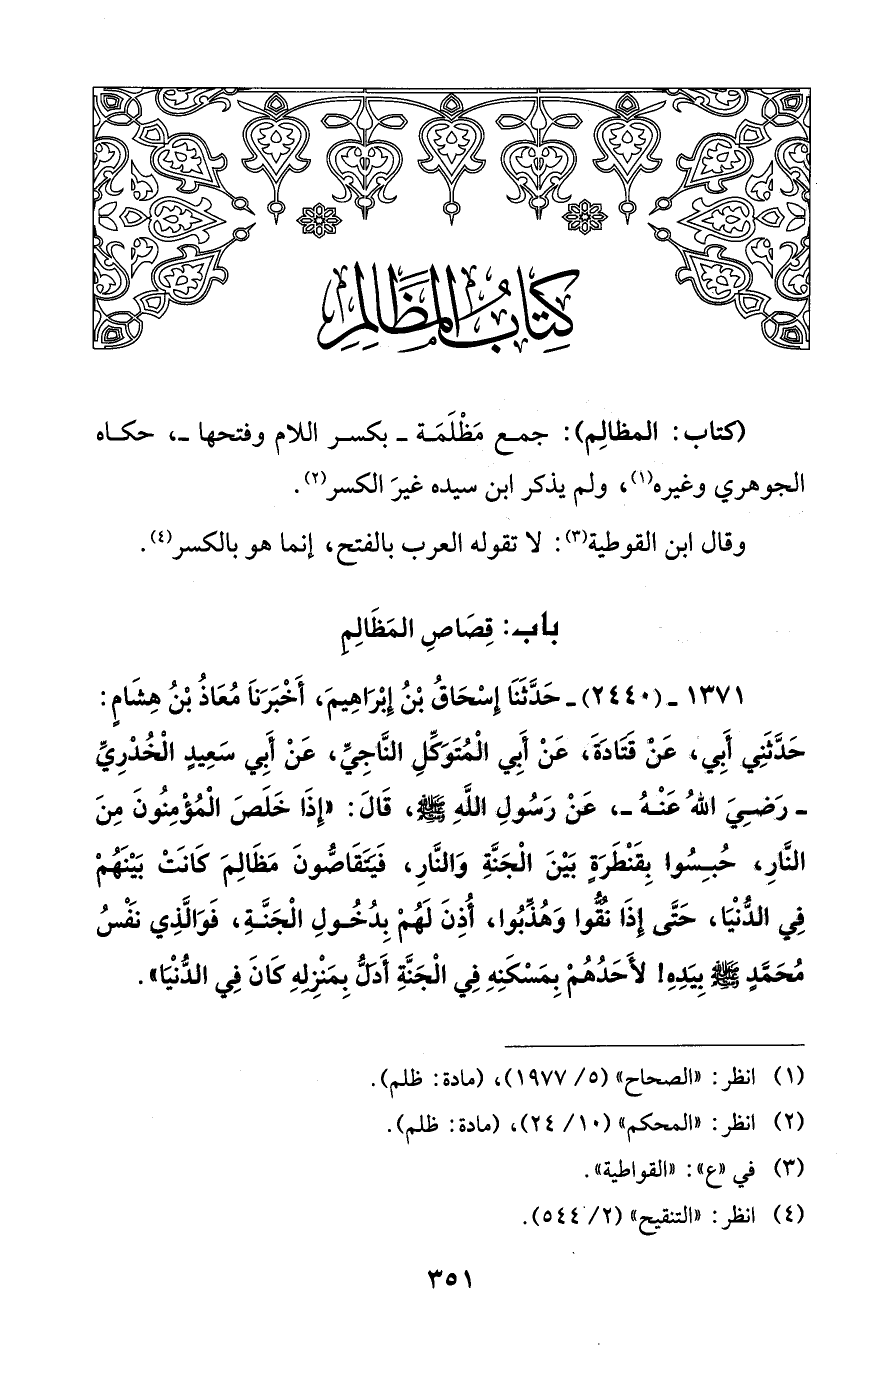 كِتَابُ المَظَالِمِ
(كتاب: المظالِم): جمع مَظْلَمَة ـ بكسر اللام وفتحها ـ، حكاه
الجوهري وغيره(١)، ولم يذكر ابن سيده غيرَ الكسر(٢).
وقال ابن القوطية(٣): لا تقوله العرب بالفتح، إنما هو بالكسر(٤).
باب: قِصَاصِ المَظَالِمِ
١٣٧١ ـ (٢٤٤٠) ـ حَدَّثَنَا إِسْحَاقُ بْنُ إِبْرَاهِيمَ، أَخْبَرَنَا مُعَاذُ بْنُ هِشَامٍ:
حَدَّثَنِي أَبِي، عَنْ قَتَادَةَ، عَنْ أَبِي الْمُتَوَكِّلِ النَّاجِيِّ، عَنْ أَبِي سَعِيدٍ الْخُدْرِيِّ
ـ رَضِيَ اللهُ عَنْهُ ـ، عَنْ رَسُولِ اللَّهِ ﷺ، قَالَ: «إِذَا خَلَصَ الْمُؤْمِنُونَ مِنَ
النَّارِ، حُبِسُوا بِقَنْطَرَةٍ بَيْنَ الْجَنَّةِ وَالنَّارِ، فَيَتَقَاصُّونَ مَظَالِمَ كَانَتْ بَيْنَهُمْ
فِي الدُّنْيَا، حَتَّى إِذَا نُقُّوا وَهُذِّبُوا، أُذِنَ لَهُمْ بِدُخُولِ الْجَنَّةِ، فَوَالَّذِي نَفْسُ
مُحَمَّدٍ ﷺ بِيَدِهِ! لأَحَدُهُمْ بِمَسْكَنِهِ فِي الْجَنَّةِ أَدَلُّ بِمَنْزِلِهِ كَانَ فِي الدُّنْيَا».
(١) انظر: «الصحاح» (٥/ ١٩٧٧)، (مادة: ظلم).
(٢) انظر: «المحكم» (١٠/ ٢٤)، (مادة: ظلم).
(٣) في «ع»: «القواطية».
(٤) انظر: «التنقيح» (٢/ ٥٤٤).
٣٥١